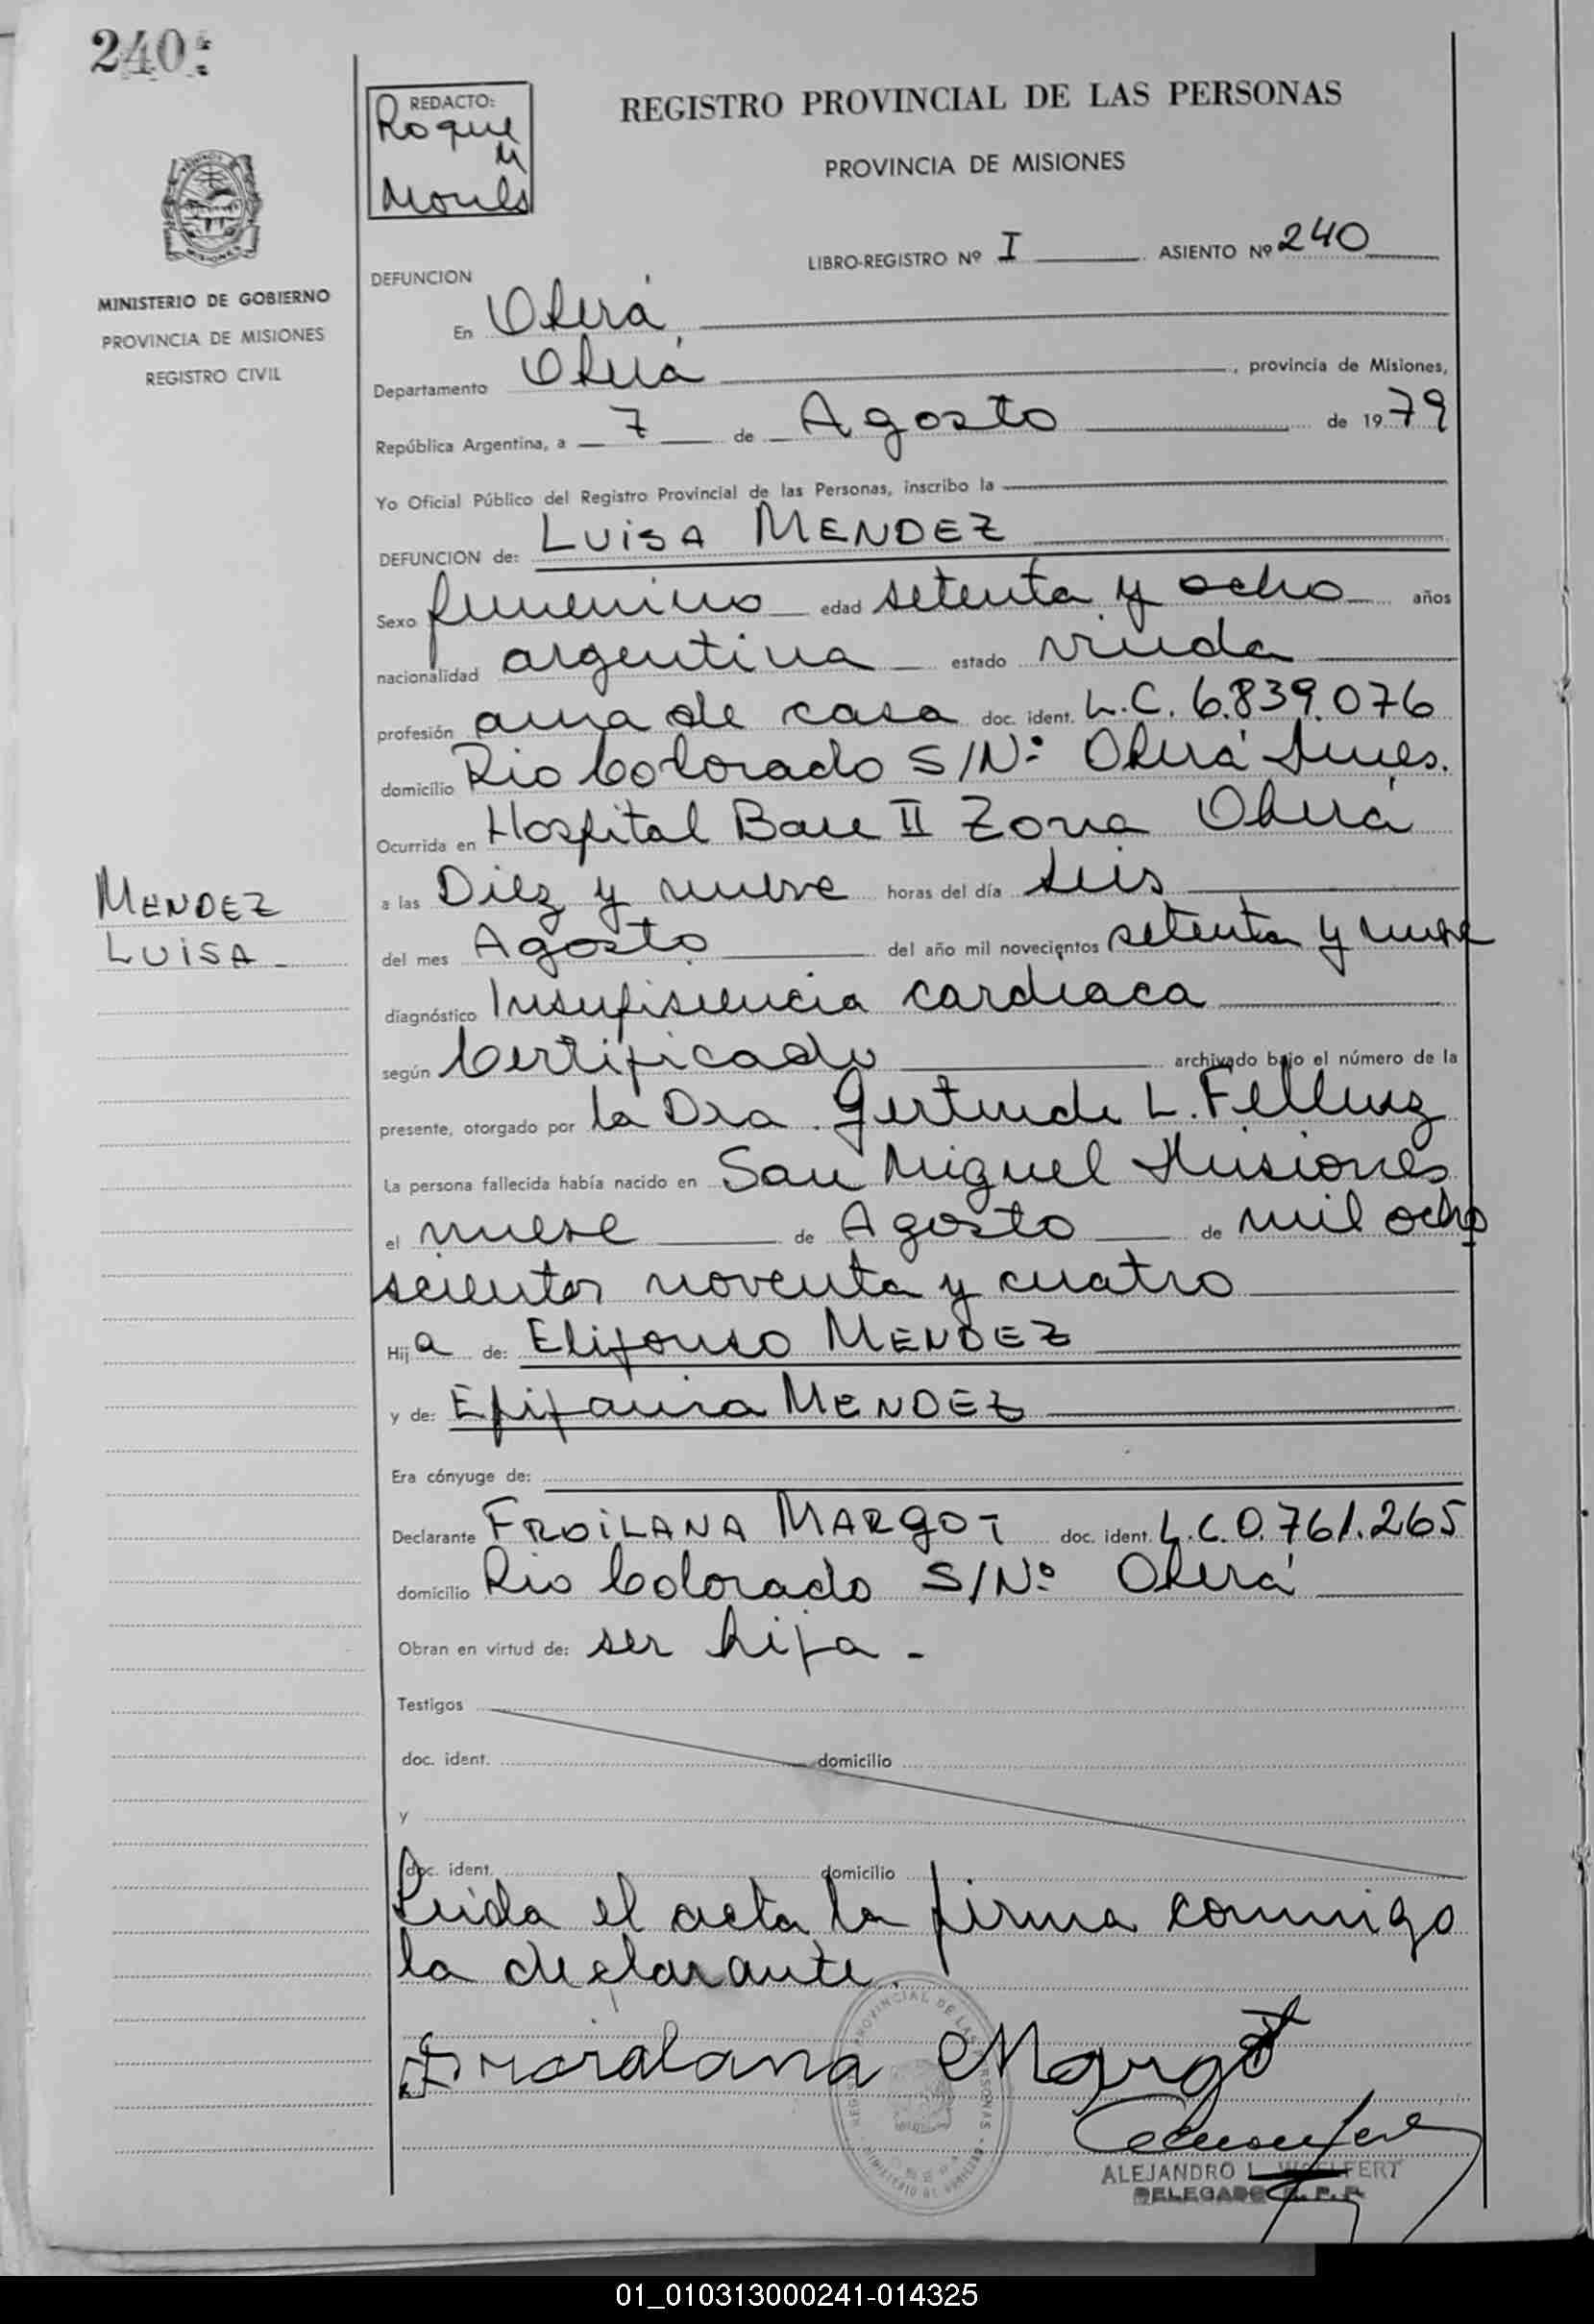 240
REDACTO:
Roque
M
REGISTRO PROVINCIAL DE LAS PERSONAS
PROVINCIA DE MISIONES
MINISTERIO DE GOBIERNO
PROVINCIA DE MISIONES
REGISTRO CIVIL
LIBRO-REGISTRO Nº I ASIENTO Nº 240
DEFUNCION
En Oberá
Departamento Oberá, provincia de Misiones,
República Argentina, a 7 de Agosto de 1979
Yo Oficial Público del Registro Provincial de las Personas, inscribo la
DEFUNCION de: LUISA MENDEZ
Sexo femenino edad setenta y ocho años
nacionalidad argentina estado viuda
profesión ama de casa doc. ident. L.C. 6.839.076
domicilio Rio Colorado S/Nº Oberá Mnes.
Ocurrida en Hospital Base II Zona Oberá
MENDEZ
LUISA
a las Diez y nueve horas del día seis
del mes Agosto del año mil novecientos setenta y nueve
diagnóstico Insufisiencia cardiaca
según Certificado archivado bajo el número de la
presente, otorgado por la Dra. Gertrude L.
La persona fallecida había nacido en San Miguel Misiones
el nueve de Agosto de mil ocho
scientos noventa y cuatro
Hija de: Elifonso MENDEZ
y de: Epifania MENDEZ
Era cónyuge de:
Declarante FROILANA MARGOT doc. ident. L.C. 0.761.265
domicilio Rio Colorado S/Nº Oberá
Obran en virtud de: ser hija -
Testigos
doc. ident. domicilio
y
doc. ident. domicilio
Leida el acta la firma conmigo
la declarante.
Margot
ALEJANDRO L. WOELFERT
DELEGADO R. P. P.
01_010313000241-014325